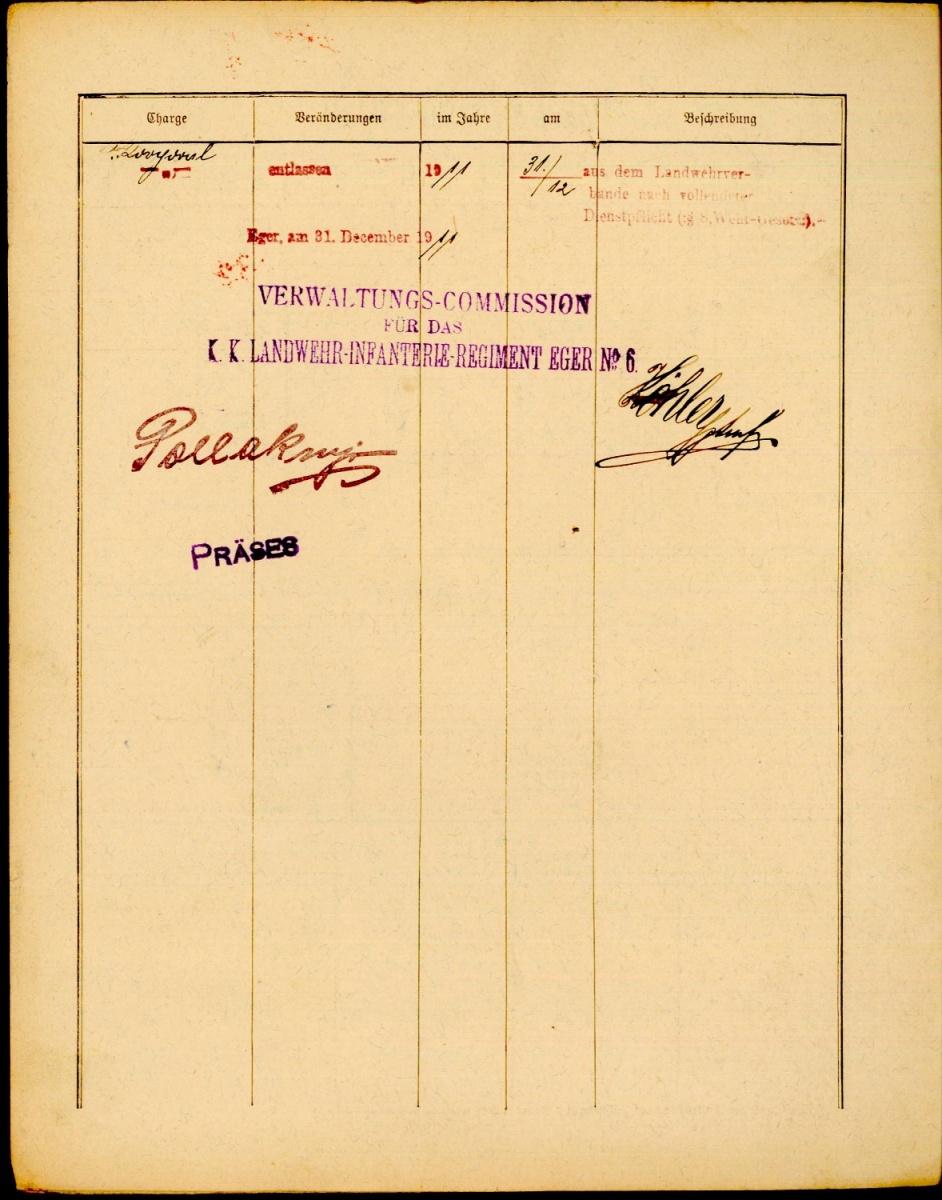 Charge Veränderungen im Jahre am Beschreibung
entlassen 1911 31./12 aus dem Landwehrver-
bande nach vollendeter
Dienstpflicht (:§ 8, Wehr-Gesetz:).-
Eger, am 31. December 1911
VERWALTUNGS-COMMISSION
FÜR DAS
K. K. LANDWEHR-INFANTERIE-REGIMENT EGER No 6.
Köhler
Pollak
PRÄSES